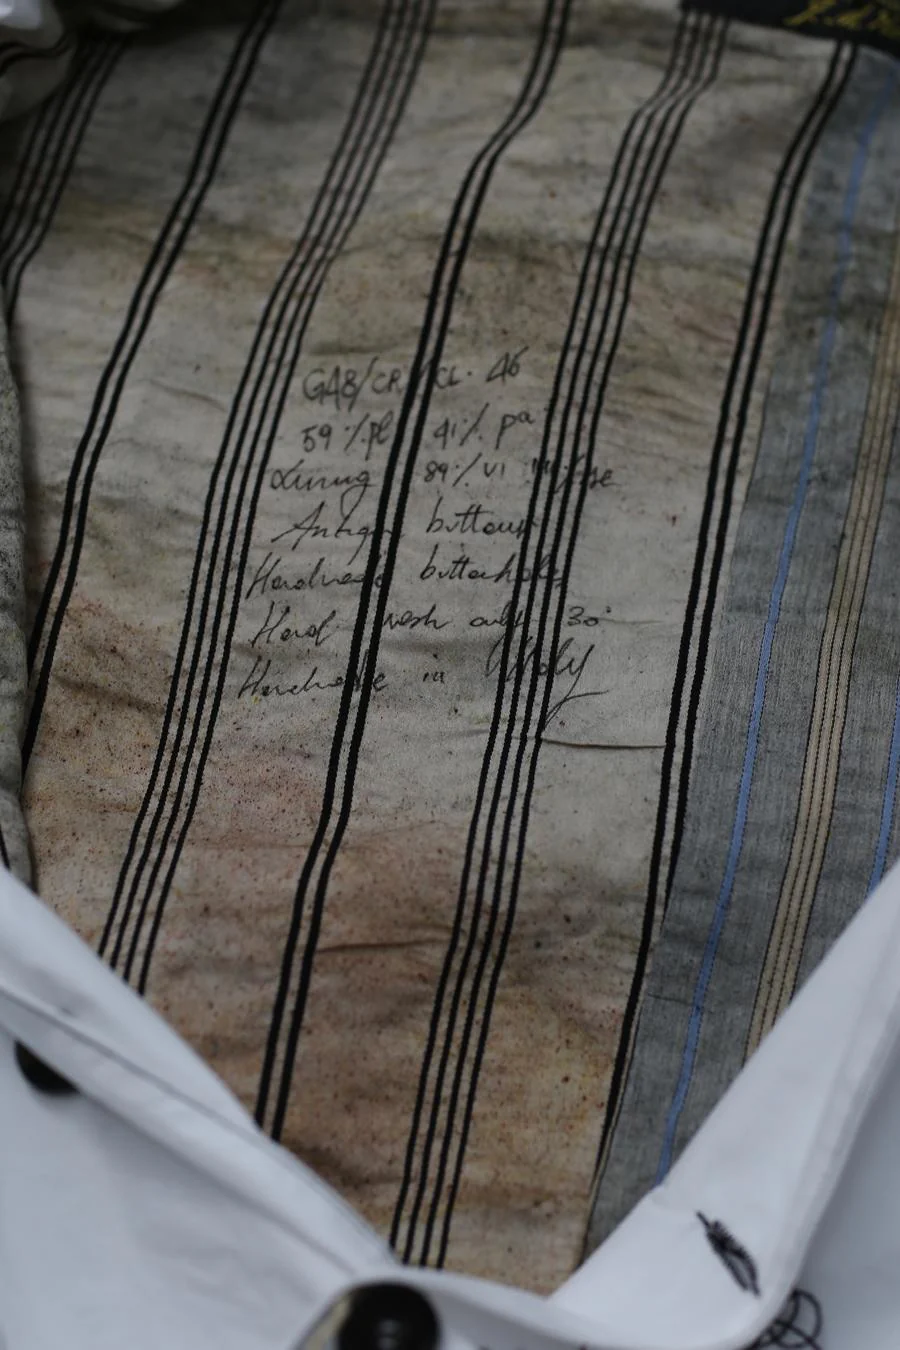 GAB/CR/CL. 46
59 %pl 41% pa
Lining 89% vi 11%se
Antique buttons
Handmade buttonholes
Hand wash only 30°
Handmade in Italy